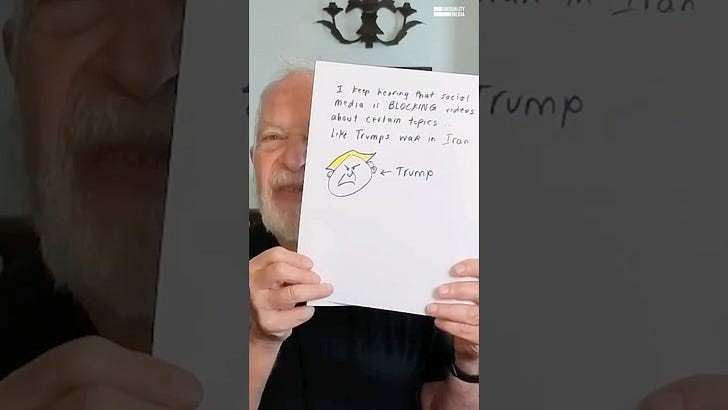 INEQUALITY
MEDIA
I keep hearing that social
media is BLOCKING videos
about certain topics..
like Trumps war in Iran
← Trump